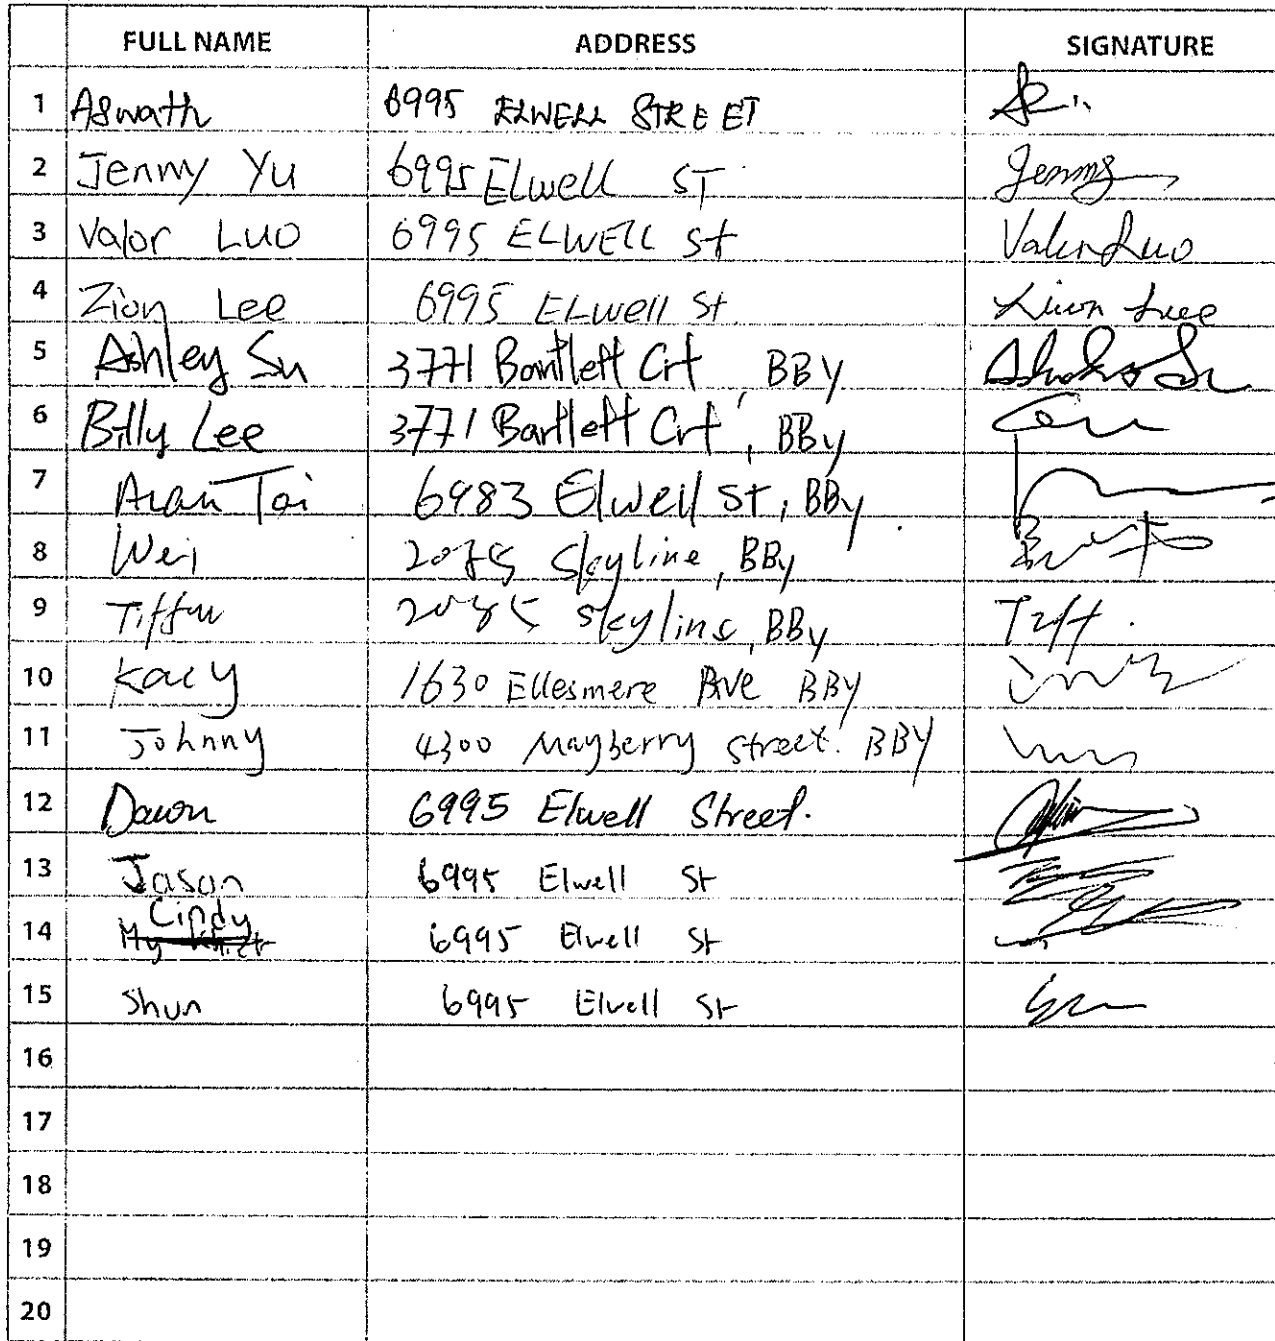 FULL NAME ADDRESS SIGNATURE
1 Aswath 6995 ELWELL STREET
2 Jenny Yu 6995 Elwell ST Jenny
3 Valor LUO 6995 ELWELL St Valor Luo
4 Zion Lee 6995 ELwell St.
5 Ashley Su 3771 Bartlett Crt, BBY
6 Billy Lee 3771 Bartlett Crt, BBy
7 Tai 6983 Elwell St, BBy.
8 Wei Skyline, BBy
9 Skyline, BBy Tiff.
10 Kacy 1630 Ellesmere Ave BBY
11 Johnny 4300 Mayberry street. BBY
12 Dawn 6995 Elwell Street.
13 Jason 6995 Elwell St
Cindy
14 6995 Elwell St
15 Shun 6995 Elwell St
16
17
18
19
20